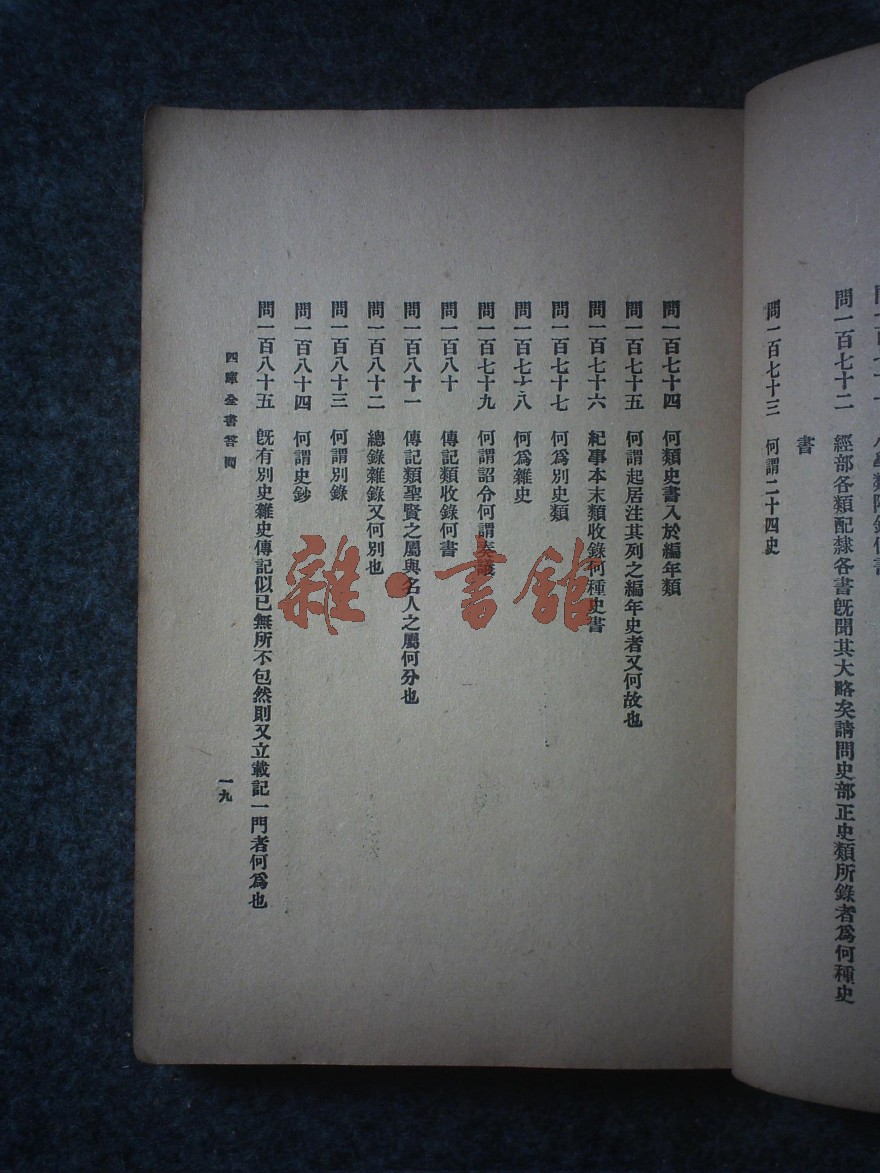 問一百七十二　經部各類配隸各書旣聞其大略矣請問史部正史類所錄者爲何種史
書
問一百七十三　何謂二十四史
問一百七十四　何類史書入於編年類
問一百七十五　何謂起居注其列之編年史者又何故也
問一百七十六　紀事本末類收錄何種史書
問一百七十七　何爲別史類
問一百七十八　何爲雜史
問一百七十九　何謂詔令何謂奏議
問一百八十　傳記類收錄何書
問一百八十一　傳記類聖賢之屬與名人之屬何分也
問一百八十二　總錄雜錄又何別也
問一百八十三　何謂別錄
問一百八十四　何謂史鈔
問一百八十五　旣有別史雜史傳記似已無所不包然則又立載記一門者何爲也
四庫全書答問
一九
雜·書館